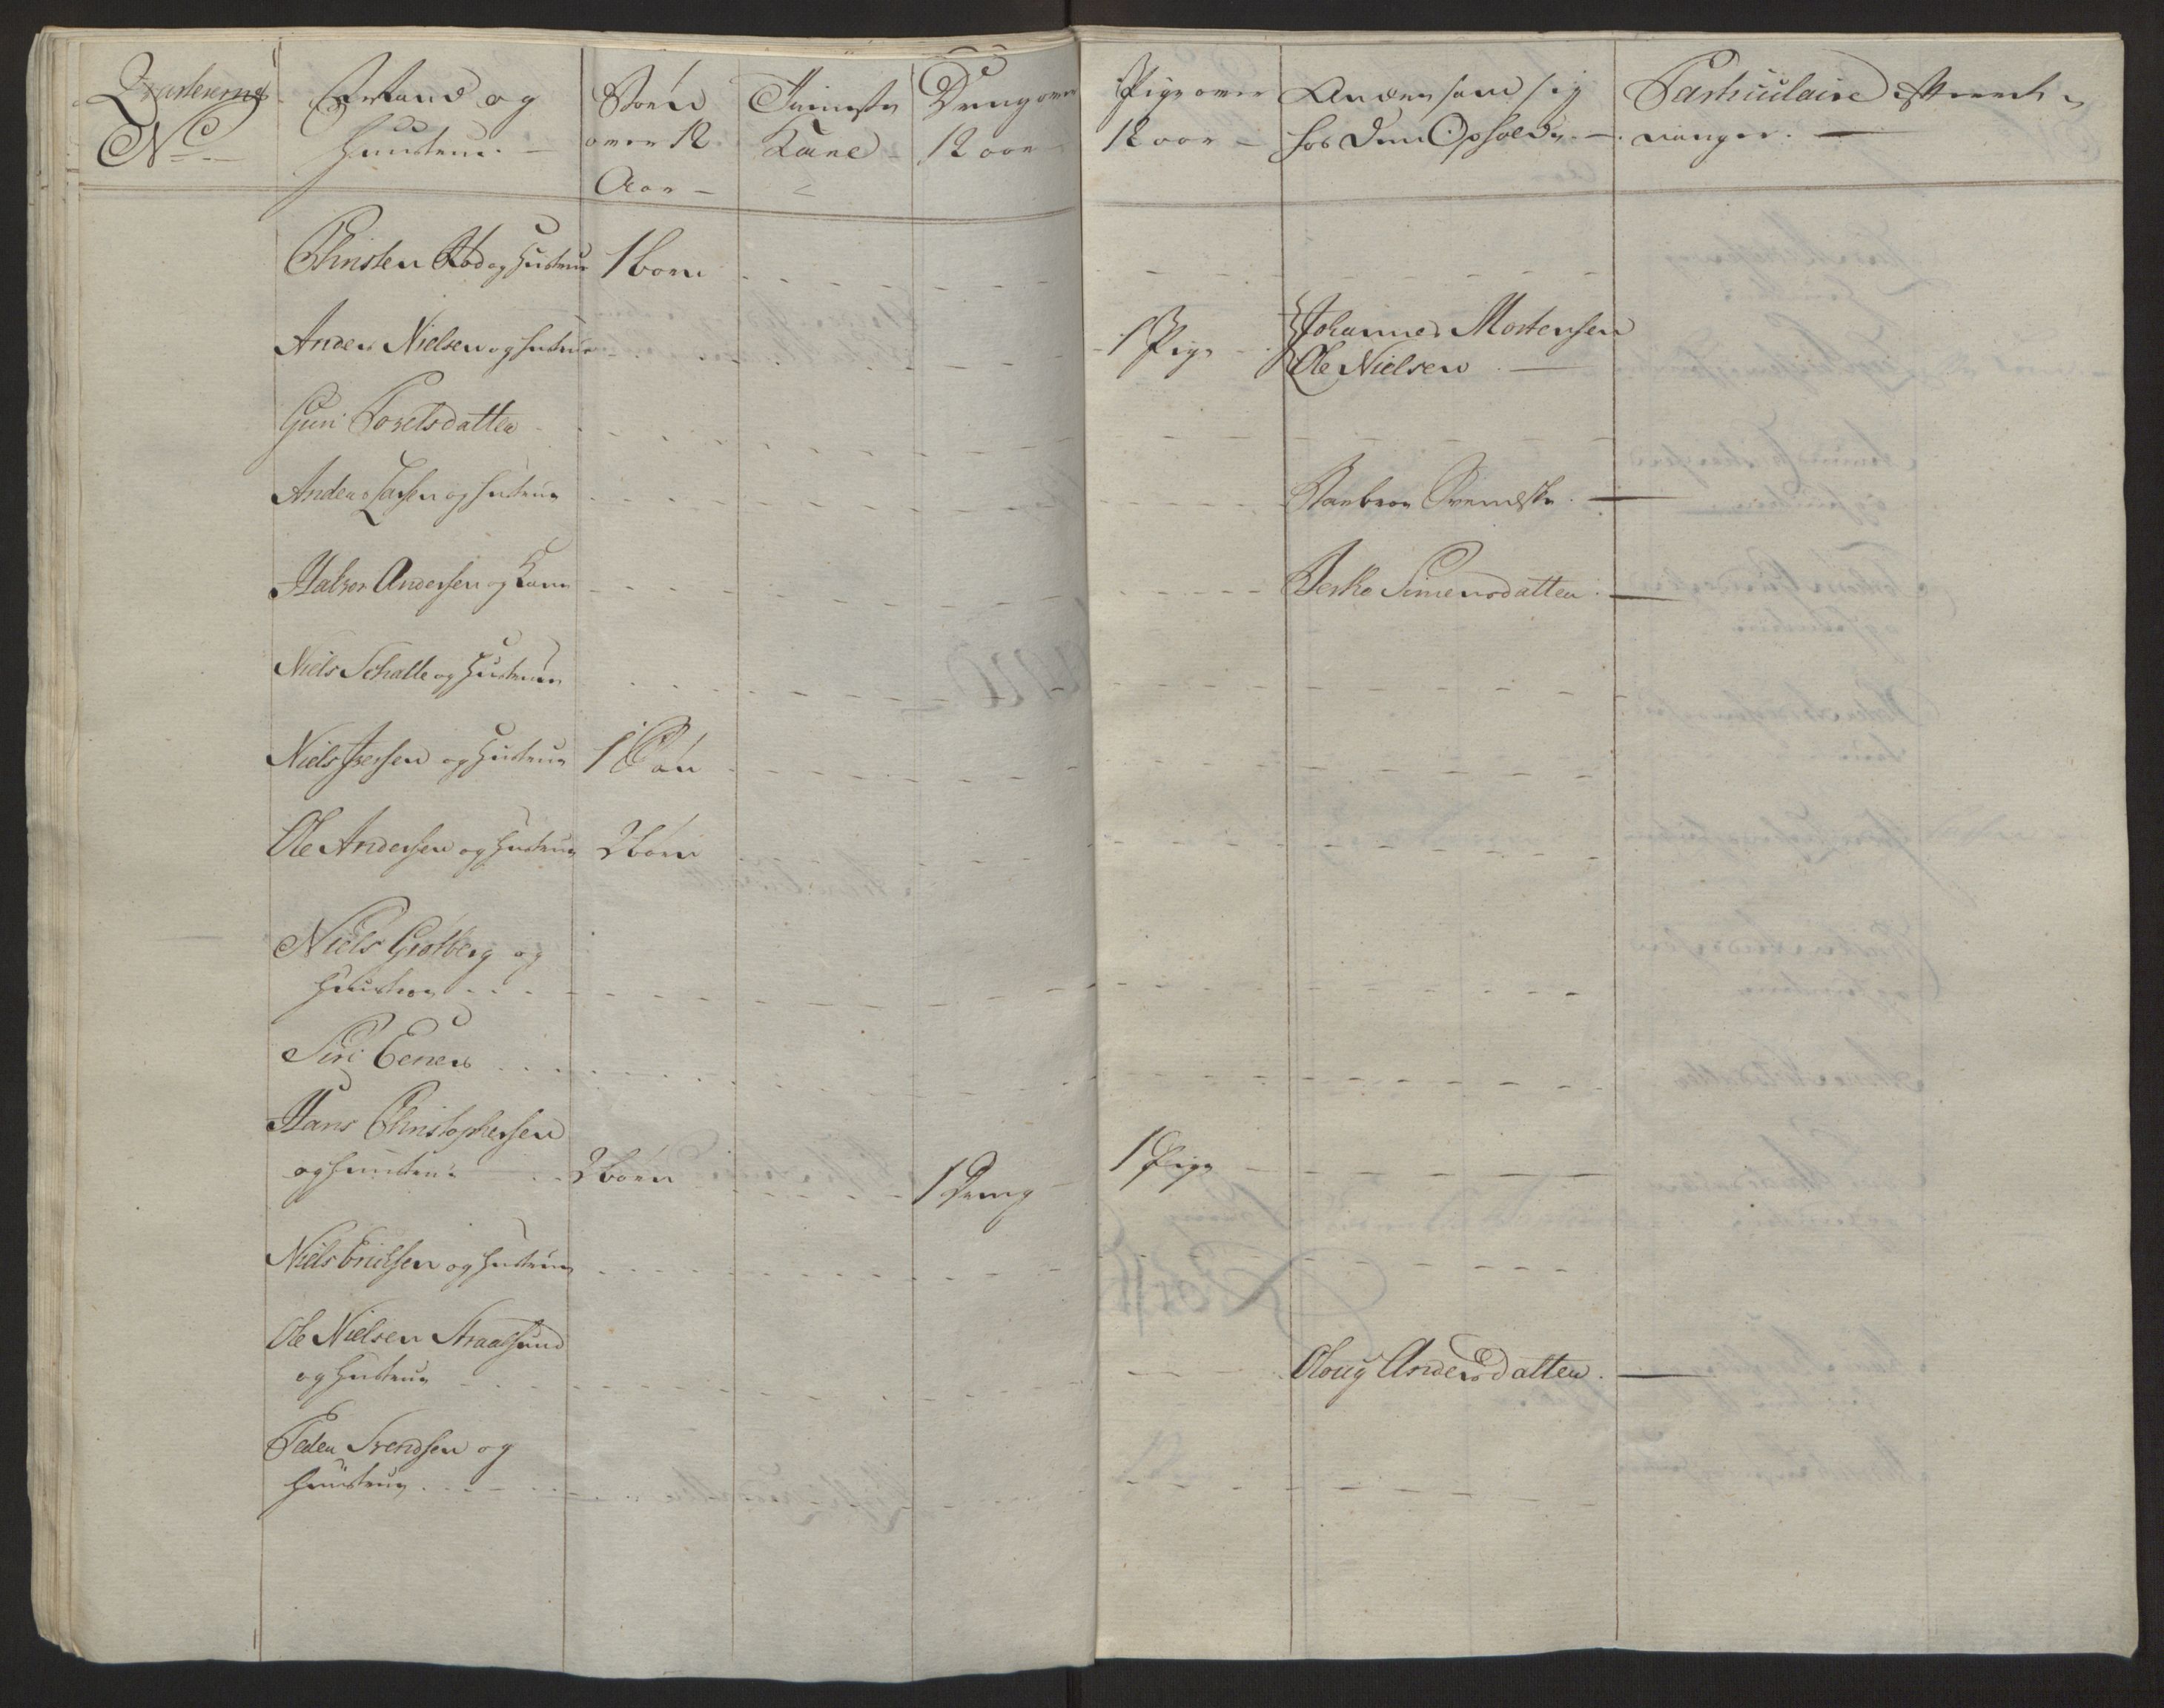 Qvarterernes No
Ectand og Hustrue.
Børn over 12 Aar
Tieniste Karle
Dreng over 12 aar
Pige over 12 aar
Anden som sig hos dem Opholder.
Particulaire Anmerkninger.
Christen og Hustrue 1 børn
Anders Nielsen og Hustrue 1 Pige Johannes Mortensen
Ole Nielsen
Guri Torelsdatter
Anders Larsen og Hustrue Svendsdr
Halvor Andersen og Kone Berthe Simensdatter
Niels Schalle og Hustrue
Niels Iversen og Hustrue 1 Børn
Ole Andersen og Hustrue 2 børn
Niels Grotberg og
Hustrue
Siri Eeners
Hans Christophersen
og Hustrue 2 børn 1 Dreng 1 Pige
Niels Erichsen og Hustrue
Ole Nielsen Straalsund
og Hustrue Aloug Andersdatter.
Peder Svendsen og
Hustrue